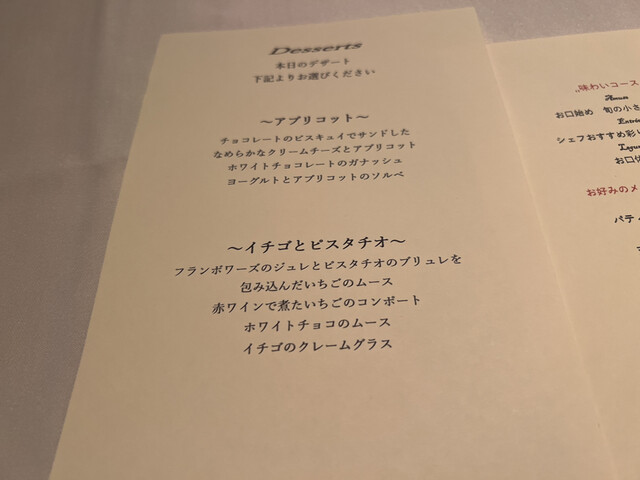 Desserts
本日のデザート
下記よりお選びください
～アプリコット～
チョコレートのビスキュイでサンドした
なめらかなクリームチーズとアプリコット
ホワイトチョコレートのガナッシュ
ヨーグルトとアプリコットのソルベ
～イチゴとピスタチオ～
フランボワーズのジュレとピスタチオのブリュレを
包み込んだいちごのムース
赤ワインで煮たいちごのコンポート
ホワイトチョコのムース
イチゴのクレームグラス
味わいコース
お口始め 旬の小さ
Entrée
シェフおすすめ彩し
お口
お好みのメ
パティ